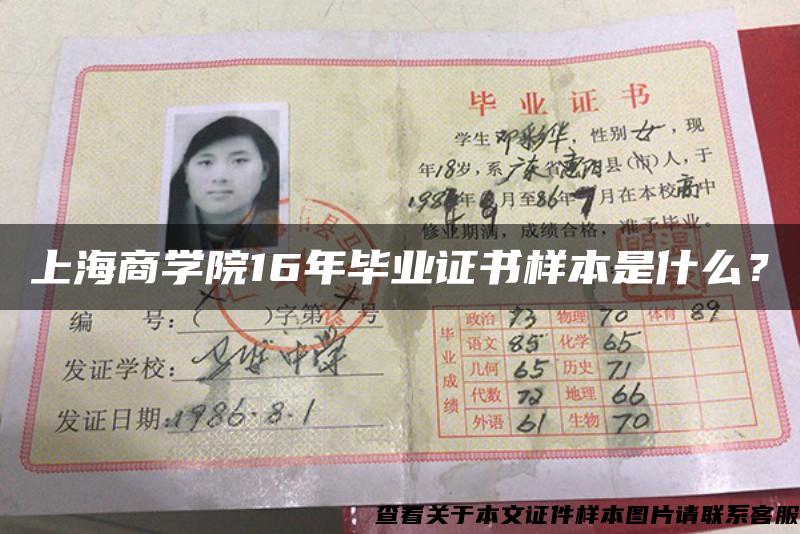 毕业证书
学生邓彩华，性别女，现
年18岁，系广东省惠阳县(市)人，于
月至86年7月在本校高中
修业期满，成绩合格，准予毕业。
上海商学院16年毕业证书样本是什么？
编 号：( )字第 号
发证学校：中学
发证日期：1986.8.1
毕业成绩
政治 73 物理 70 体育 89
语文 85 化学 65
几何 65 历史 71
代数 72 地理 66
外语 61 生物 70
查看关于本文证件样本图片请联系客服